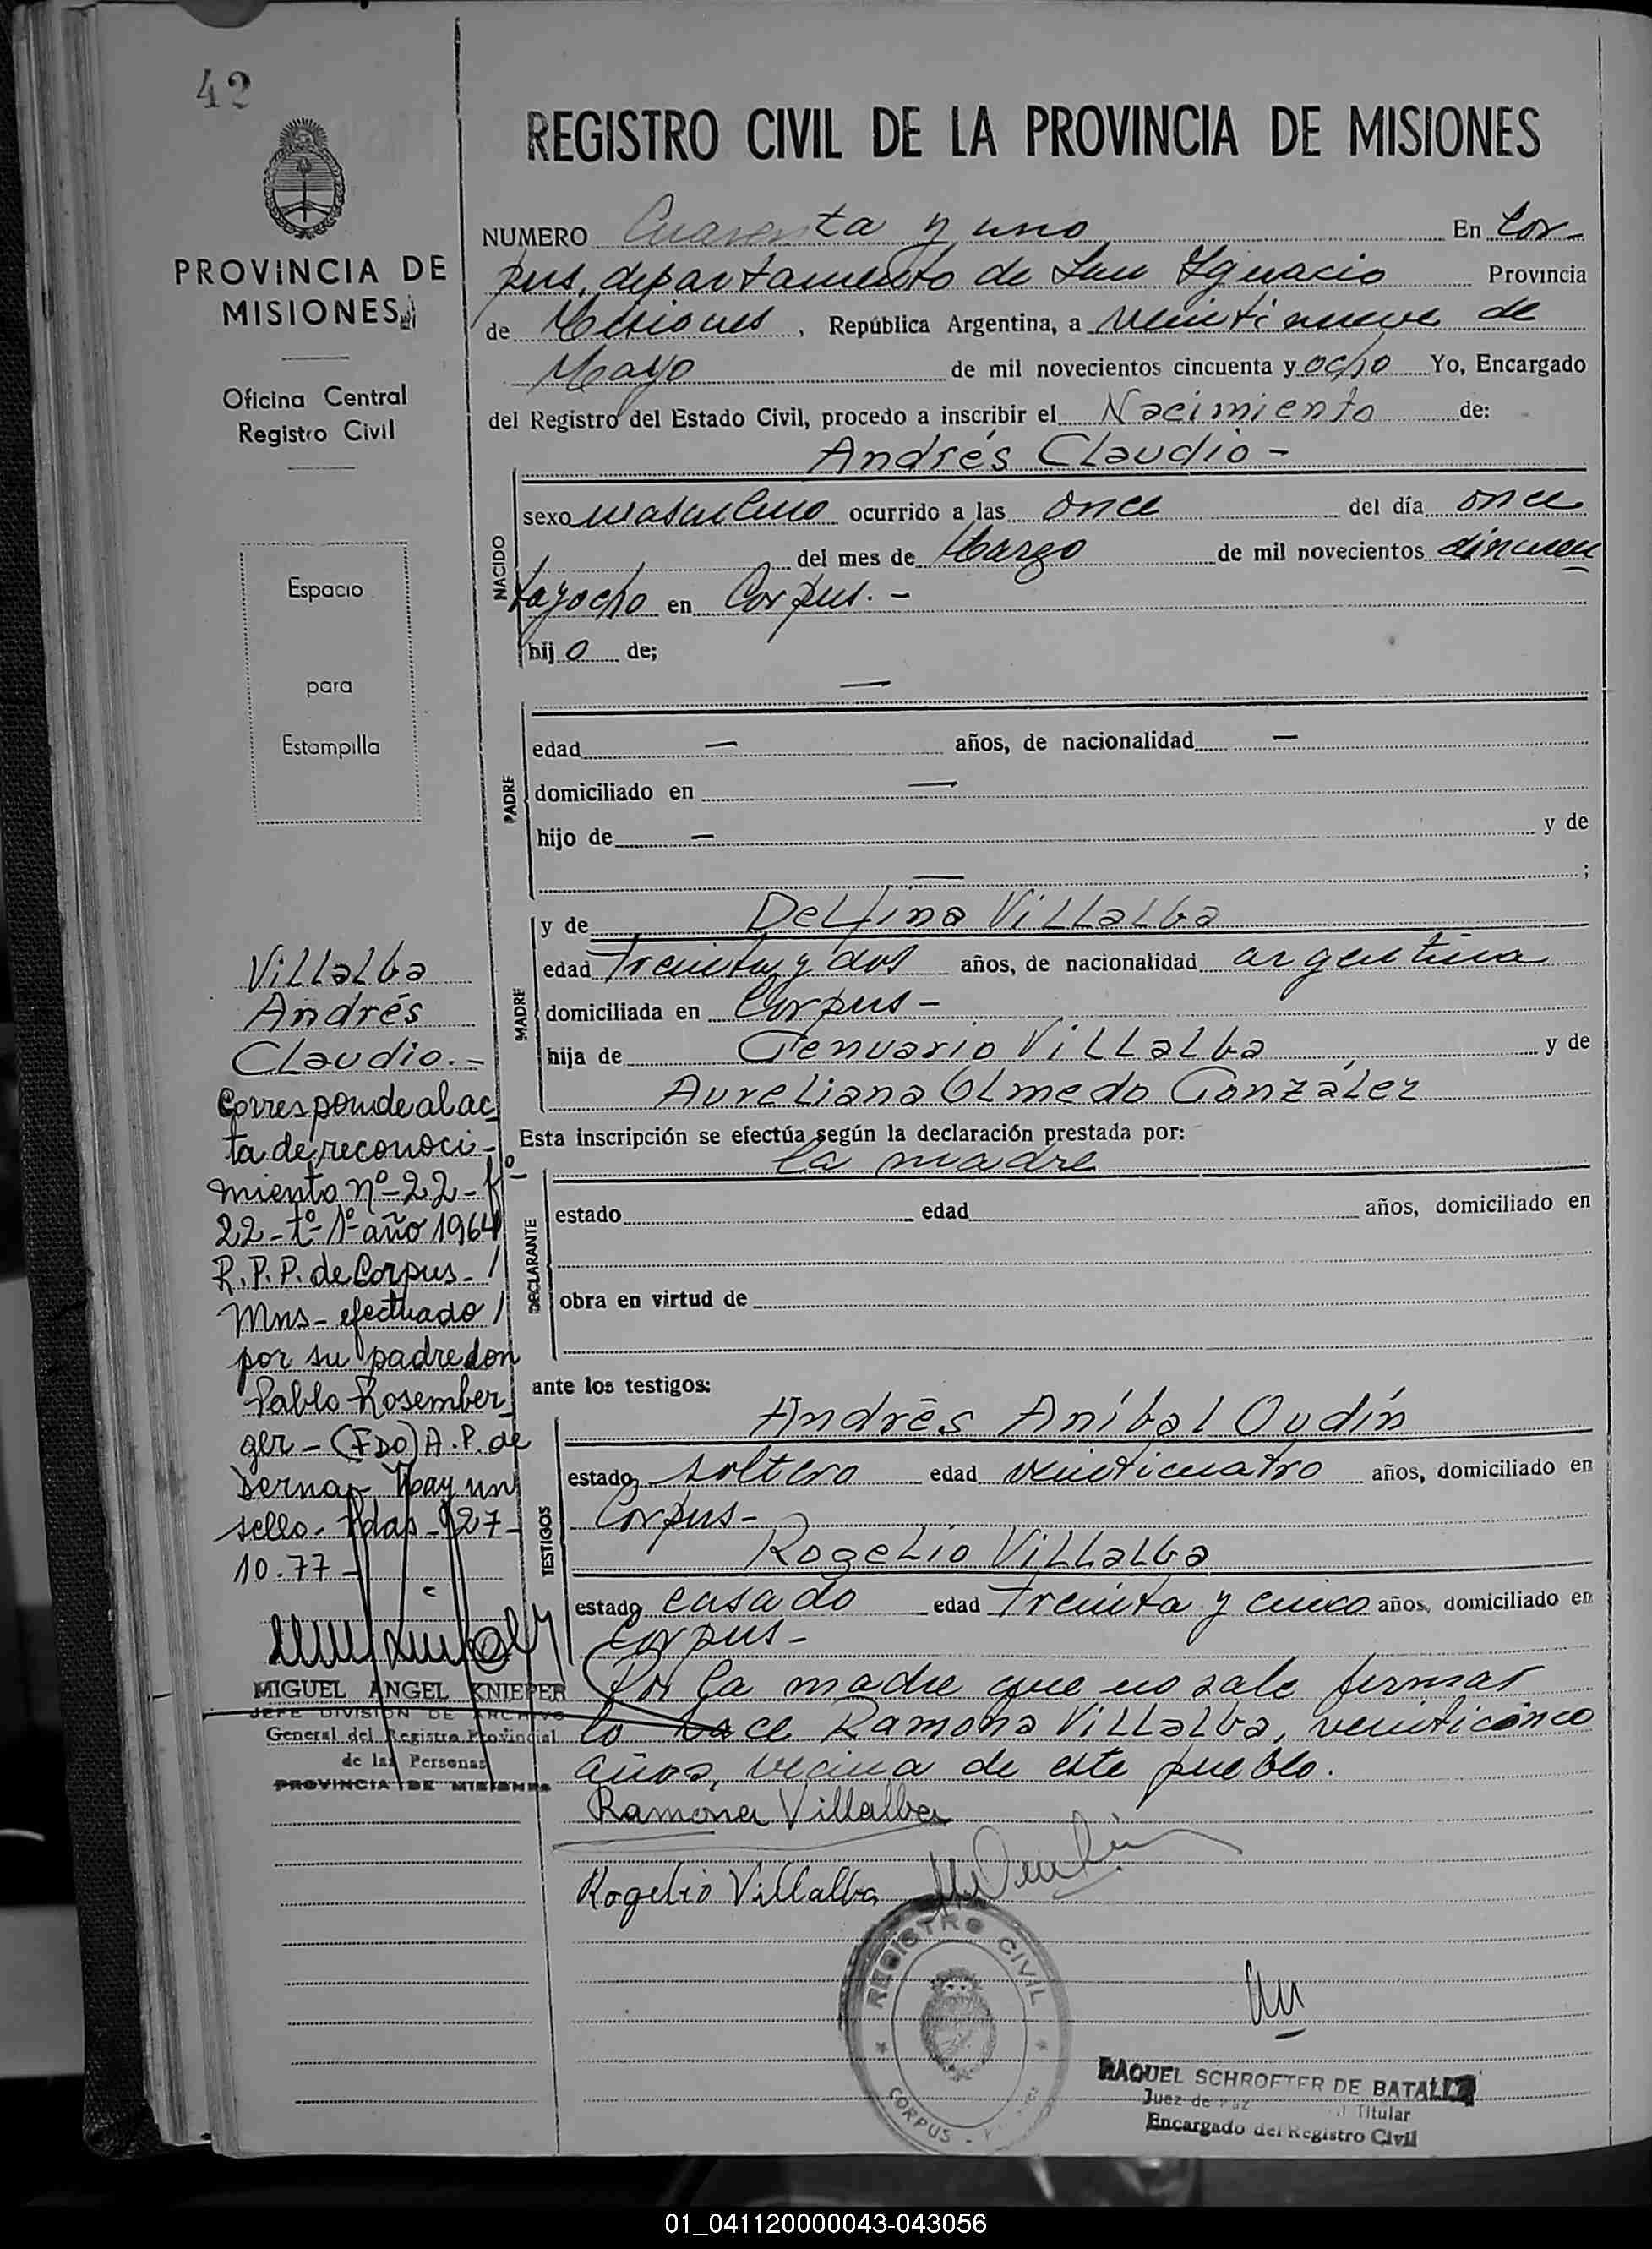 42
PROVINCIA DE
MISIONES
Oficina Central
Registro Civil
Espacio
para
Estampilla
REGISTRO CIVIL DE LA PROVINCIA DE MISIONES
NUMERO Cuarenta y uno En Cor-
pus, departamento de San Ignacio Provincia
de Misiones, República Argentina, a veintinueve de
Mayo de mil novecientos cincuenta y ocho Yo, Encargado
del Registro del Estado Civil, procedo a inscribir el Nacimiento de:
Andrés Claudio -
NACIDO
sexo masculino ocurrido a las once del día once
del mes de Marzo de mil novecientos cincuen
tayocho en Corpus. -
hijo de;
—
PADRE
edad — años, de nacionalidad —
domiciliado en —
hijo de — y de
— ;
MADRE
y de Delfina Villalba
edad Treinta y dos años, de nacionalidad argentina
domiciliada en Corpus -
hija de Genuario Villalba y de
Aureliana Olmedo González
Esta inscripción se efectúa según la declaración prestada por:
la madre
DECLARANTE
estado edad años, domiciliado en
obra en virtud de
ante los testigos:
TESTIGOS
Andrés Aníbal Oudín
estado soltero edad veinticuatro años, domiciliado en
Corpus-
Rogelio Villalba
estado casado edad Treinta y cinco años, domiciliado en
Corpus-
Por la madre que no sabe firmar
lo hace Ramona Villalba, veinticinco
años, vecina de este pueblo.
Ramona Villalba
Rogelio Villalba
REGISTRO CIVIL
CORPUS -
RAQUEL SCHROETER DE BATALLA
Juez de Paz Titular
Encargado del Registro Civil
Villalba
Andrés
Claudio.-
Corresponde al ac
ta de reconoci-
miento nº-22-fº-
22-tº-1º-año 1964
R.P.P. de Corpus-/
Mns-efectuado/
por su padre don
Pablo Rosember
ger-(FDO) A.P. de
Serna- Hay un
sello. Pdas-27-
10.77-
MIGUEL ANGEL KNIEPER
JEFE DIVISION DE ARCHIVO
General del Registro Provincial
de las Personas
PROVINCIA DE MISIONES
01_041120000043-043056